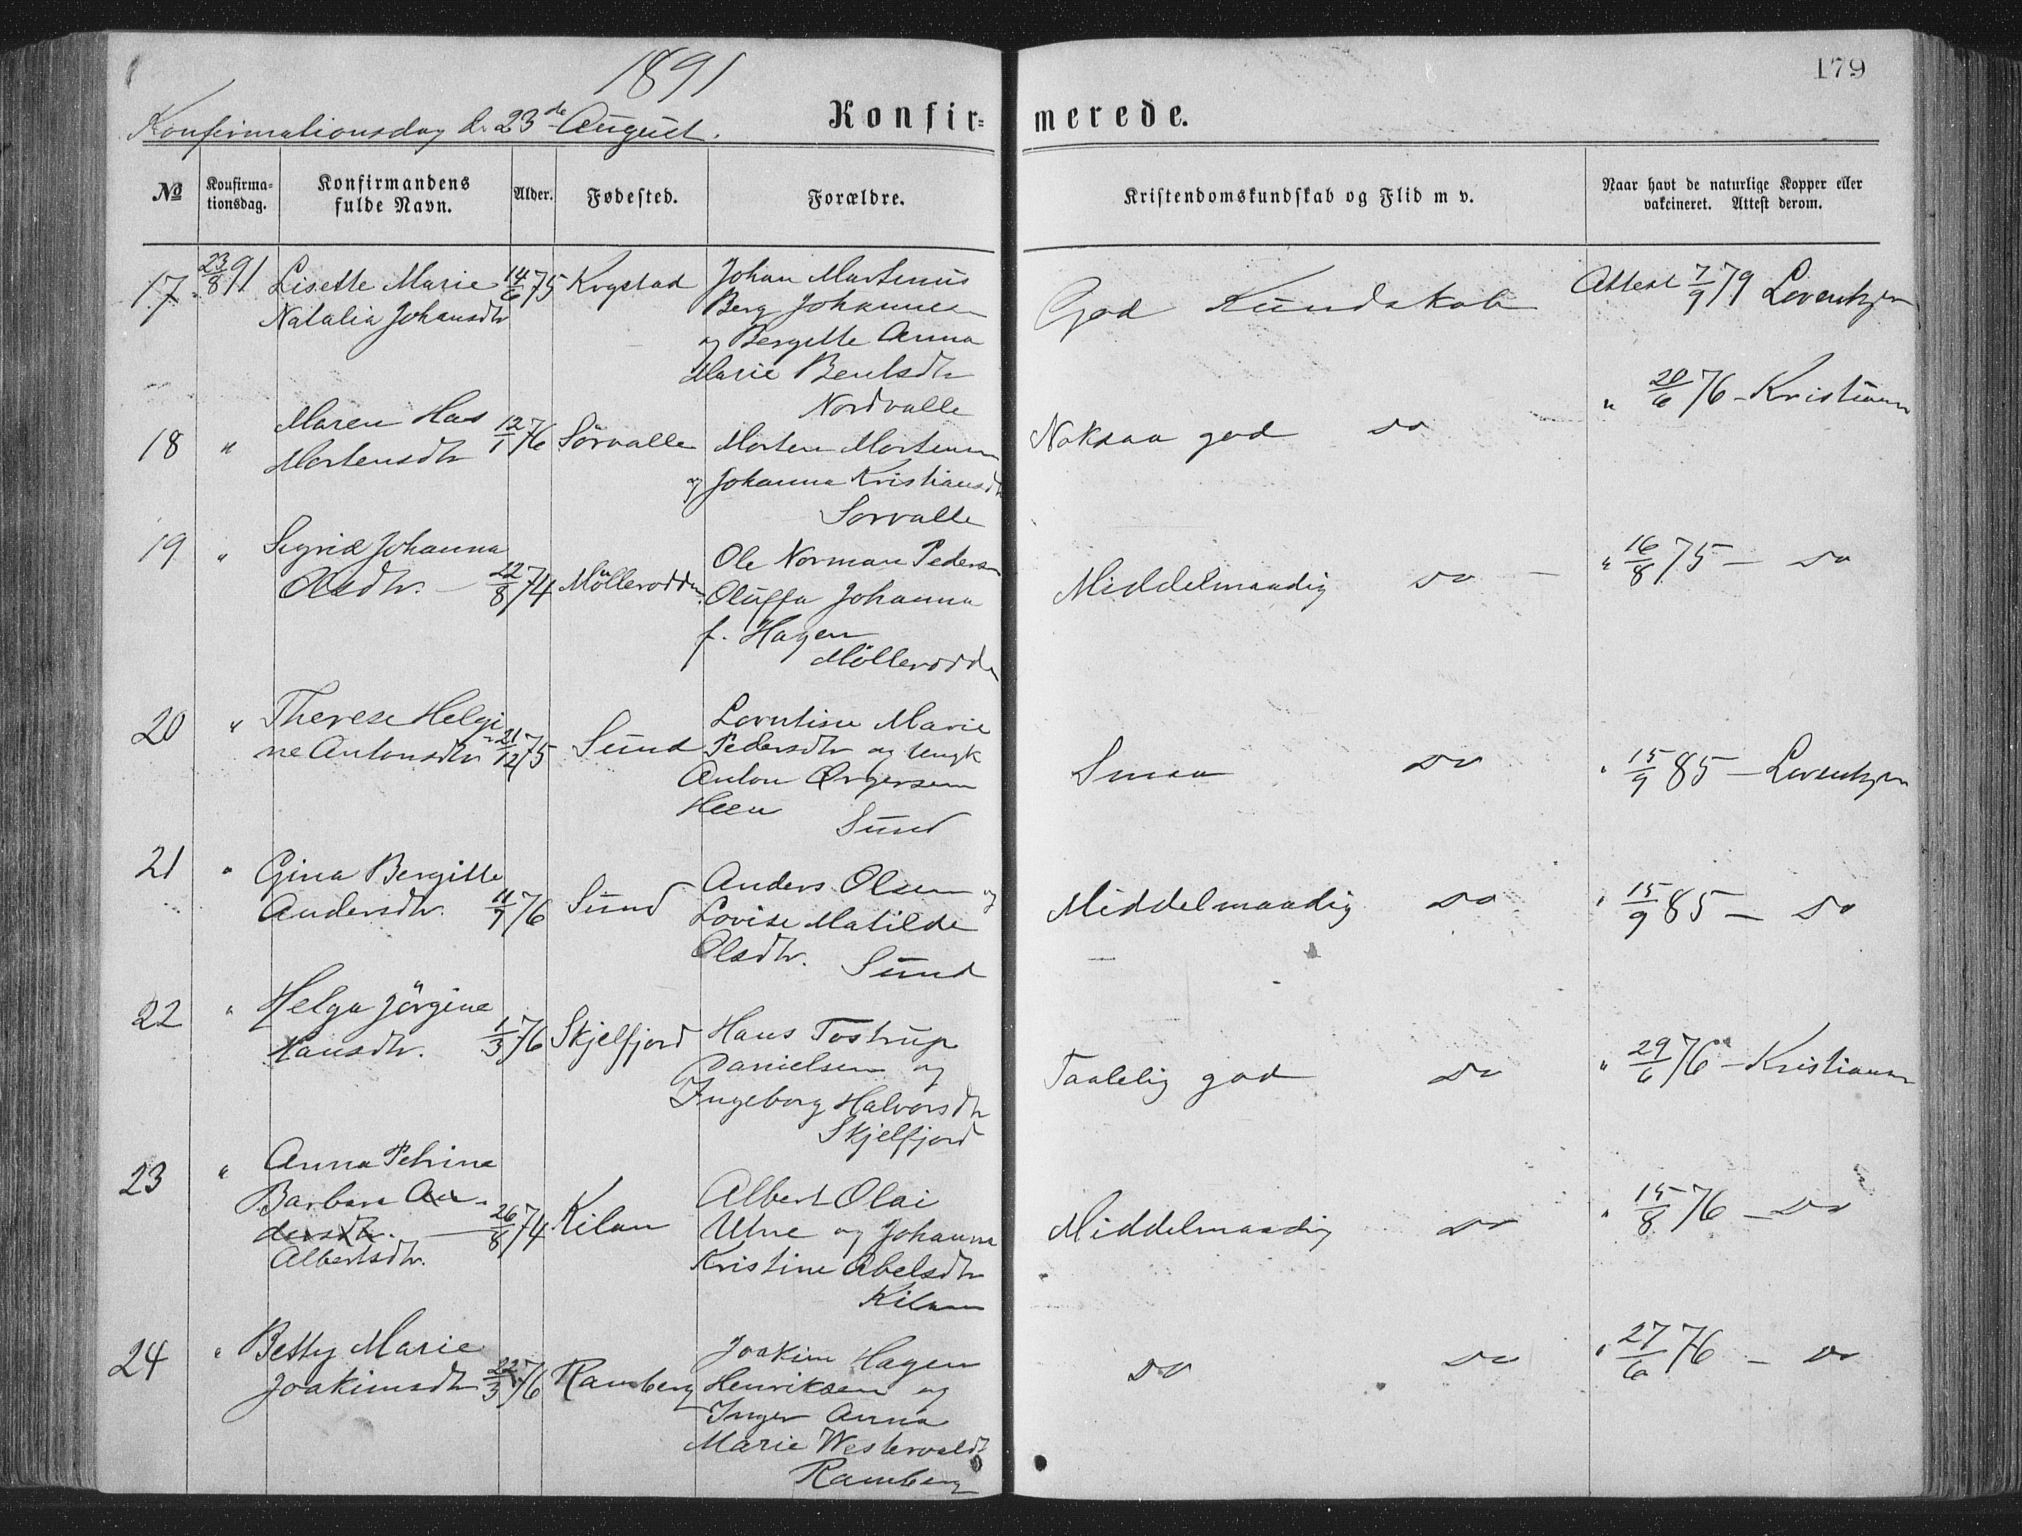 1891
179
Konfirmationsdag d. 23de August.
Konfir= merede.
No
Konfirma-
tionsdag.
Konfirmandens
fulde Navn.
Alder.
Fødested.
Forældre.
Kristendomskundskab og Flid m v.
Naar havt de naturlige Kopper eller
vakcineret. Attest derom.
17. 23/8 91 Lisette Marie 14/6 75 Krystad Johan Martinus God Kundskab Attest 7/9 79
Natalia Johansdtr Berg Johannes
og Bergitte Anna
Marie Bentsdtr
Nordvalle
18 " Maren 12/1 76 Sörvalle Morten Mortensen Noksaa god do " 20/6 76 - Kristiansen
Mortensdtr og Johanna Kristiansdtr
Sorvalle
19 " Sigrid Johanna Ole Norman Pedersen " 16/8 75 - do
Olsdtr. - 22/8 74 Möllerodden Oluffa Johanna Middelmaadig do -
f. Hagen
Möllerodden
20 " Therese Helgi Marie
ne Antonsdtr 21/12 75 Sund Pedersdtr og Ungk Smaa do " 15/9 85 -
Anton
Sund
21 " Gina Bergitte Anders Olsen og
Andersdtr. 11/7 76 Sund Lovise Matilde Middelmaadig do " 15/9 85 - do
Olsdtr. Sund
22 " Helga Jörgine
Hansdtr. 1/3 76 Skjelfjord Hans Tostrup
Danielsen og Taalelig god do " 29/6 76 - Kristiansen
Ingeborg Halvorsdtr
Skjelfjord
23 " Anna Petrine
Barbara An- Albert Olai
dersdtr. - 26/8 74 Kilan Utne og Johanna Middelmaadig do " 15/8 76 - do
Albertsdtr. Kristine Abelsdtr
Kilan
24 " Betty Marie Joakim Hagen
Joakimsdtr 22/3 76 Ramberg Henriksen og do do " 27/6 76 - do
Inger Anna
Marie
Ramberg